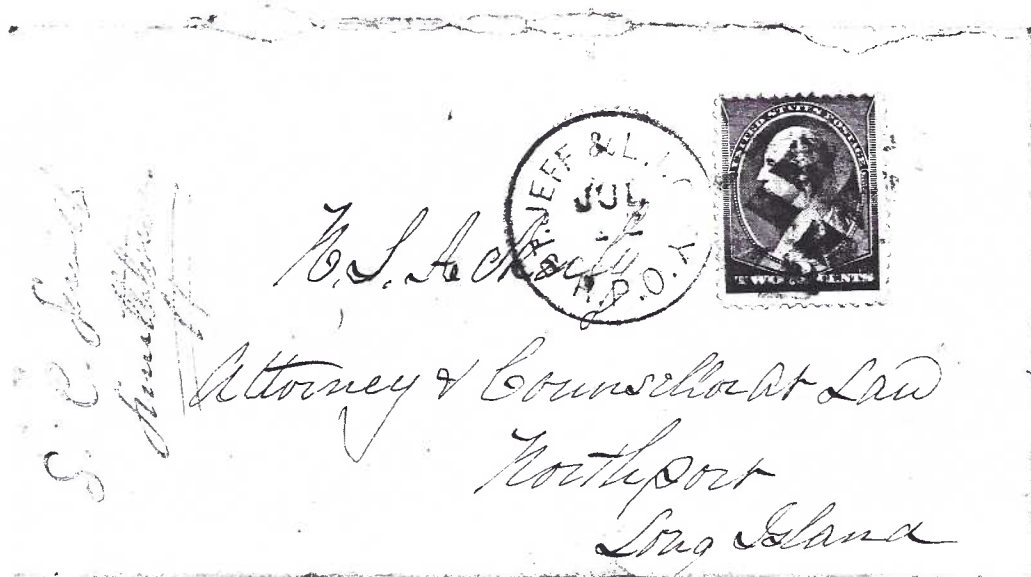 P. JEFF & L.I. CY.
R.P.O.
JUL
UNITED STATES POSTAGE
TWO CENTS
N. S. Ackerly
Attorney & Counsellor at Law
Northport
Long Island
S. C.